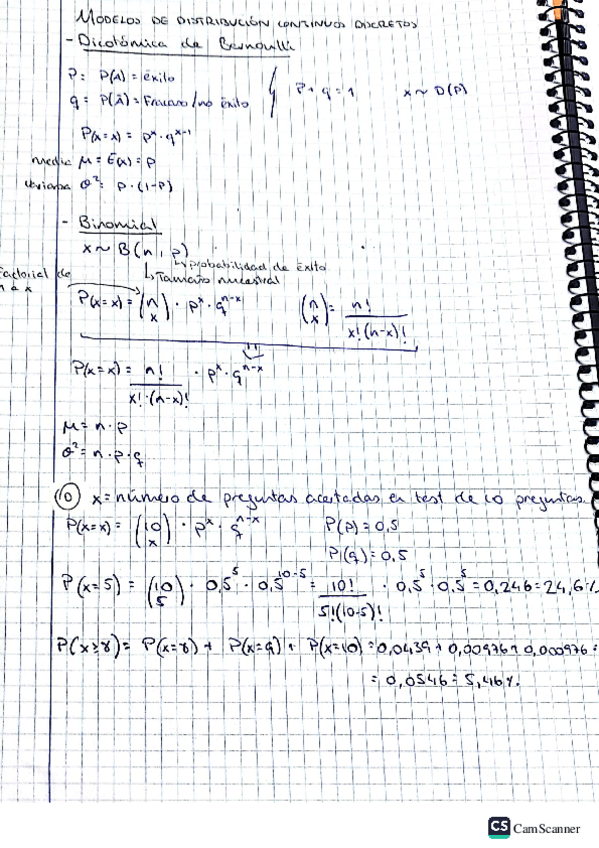 MODELOS DE DISTRIBUCIÓN CONTINUOS DISCRETOS
- Dicotómica de Bernoulli
P: P(A) = éxito
q = P(Ā) = Fracaso/no éxito
P + q = 1
x ~ D(P)
P(x=x) = p^x · q^(x-1)
media μ = E(x) = p
σ² = p · (1-p)
- Binomial
x ~ B(n, p)
↳ probabilidad de éxito
↳ Tamaño muestral
factorial de
n a x
P(x=x) = (n x) · p^x · q^(n-x)
(n x) = n! / x!(n-x)!
P(x=x) = n! / x!·(n-x)! · p^x · q^(n-x)
μ = n · p
σ² = n · p · q
(10) x = número de preguntas acertadas en test de 10 preguntas.
P(x=x) = (10 x) · p^x · q^(n-x)
P(p) = 0,5
P(q) = 0,5
P(x=5) = (10 5) · 0,5^5 · 0,5^(10-5) = 10! / 5!(10-5)! · 0,5^5 · 0,5^5 = 0,246 = 24,6%
P(x≥8) = P(x=8) + P(x=9) + P(x=10) = 0,0439 + 0,00976 + 0,000976 =
= 0,0546 = 5,46%.
CS CamScanner